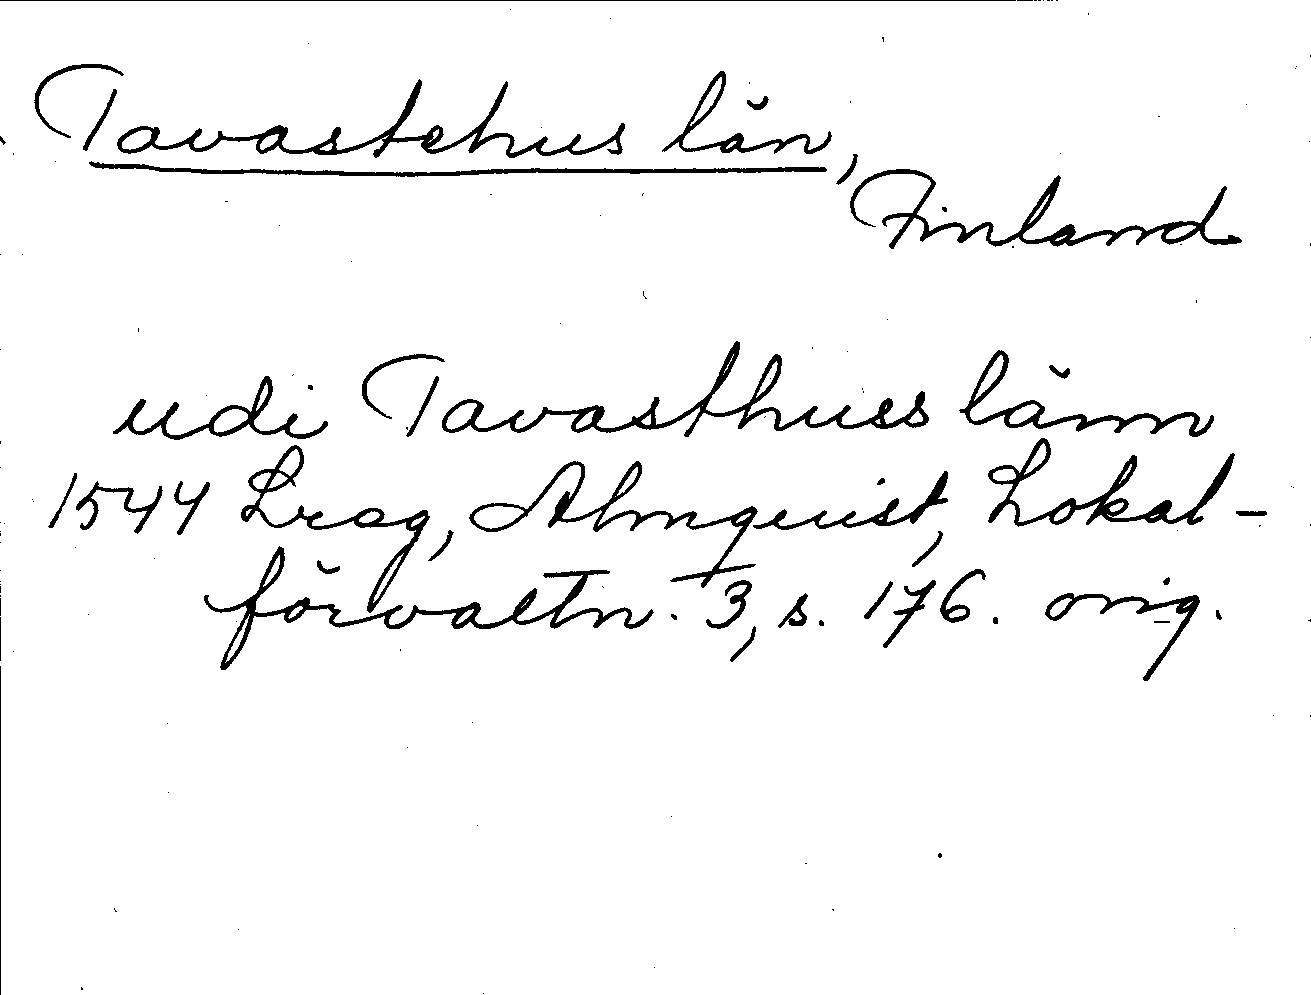 Tavastehus län,
Finland
udi Tavasthuss länn
1544 Lreg, Almquist, Lokal-
förvaltn. 3, s. 176. orig.